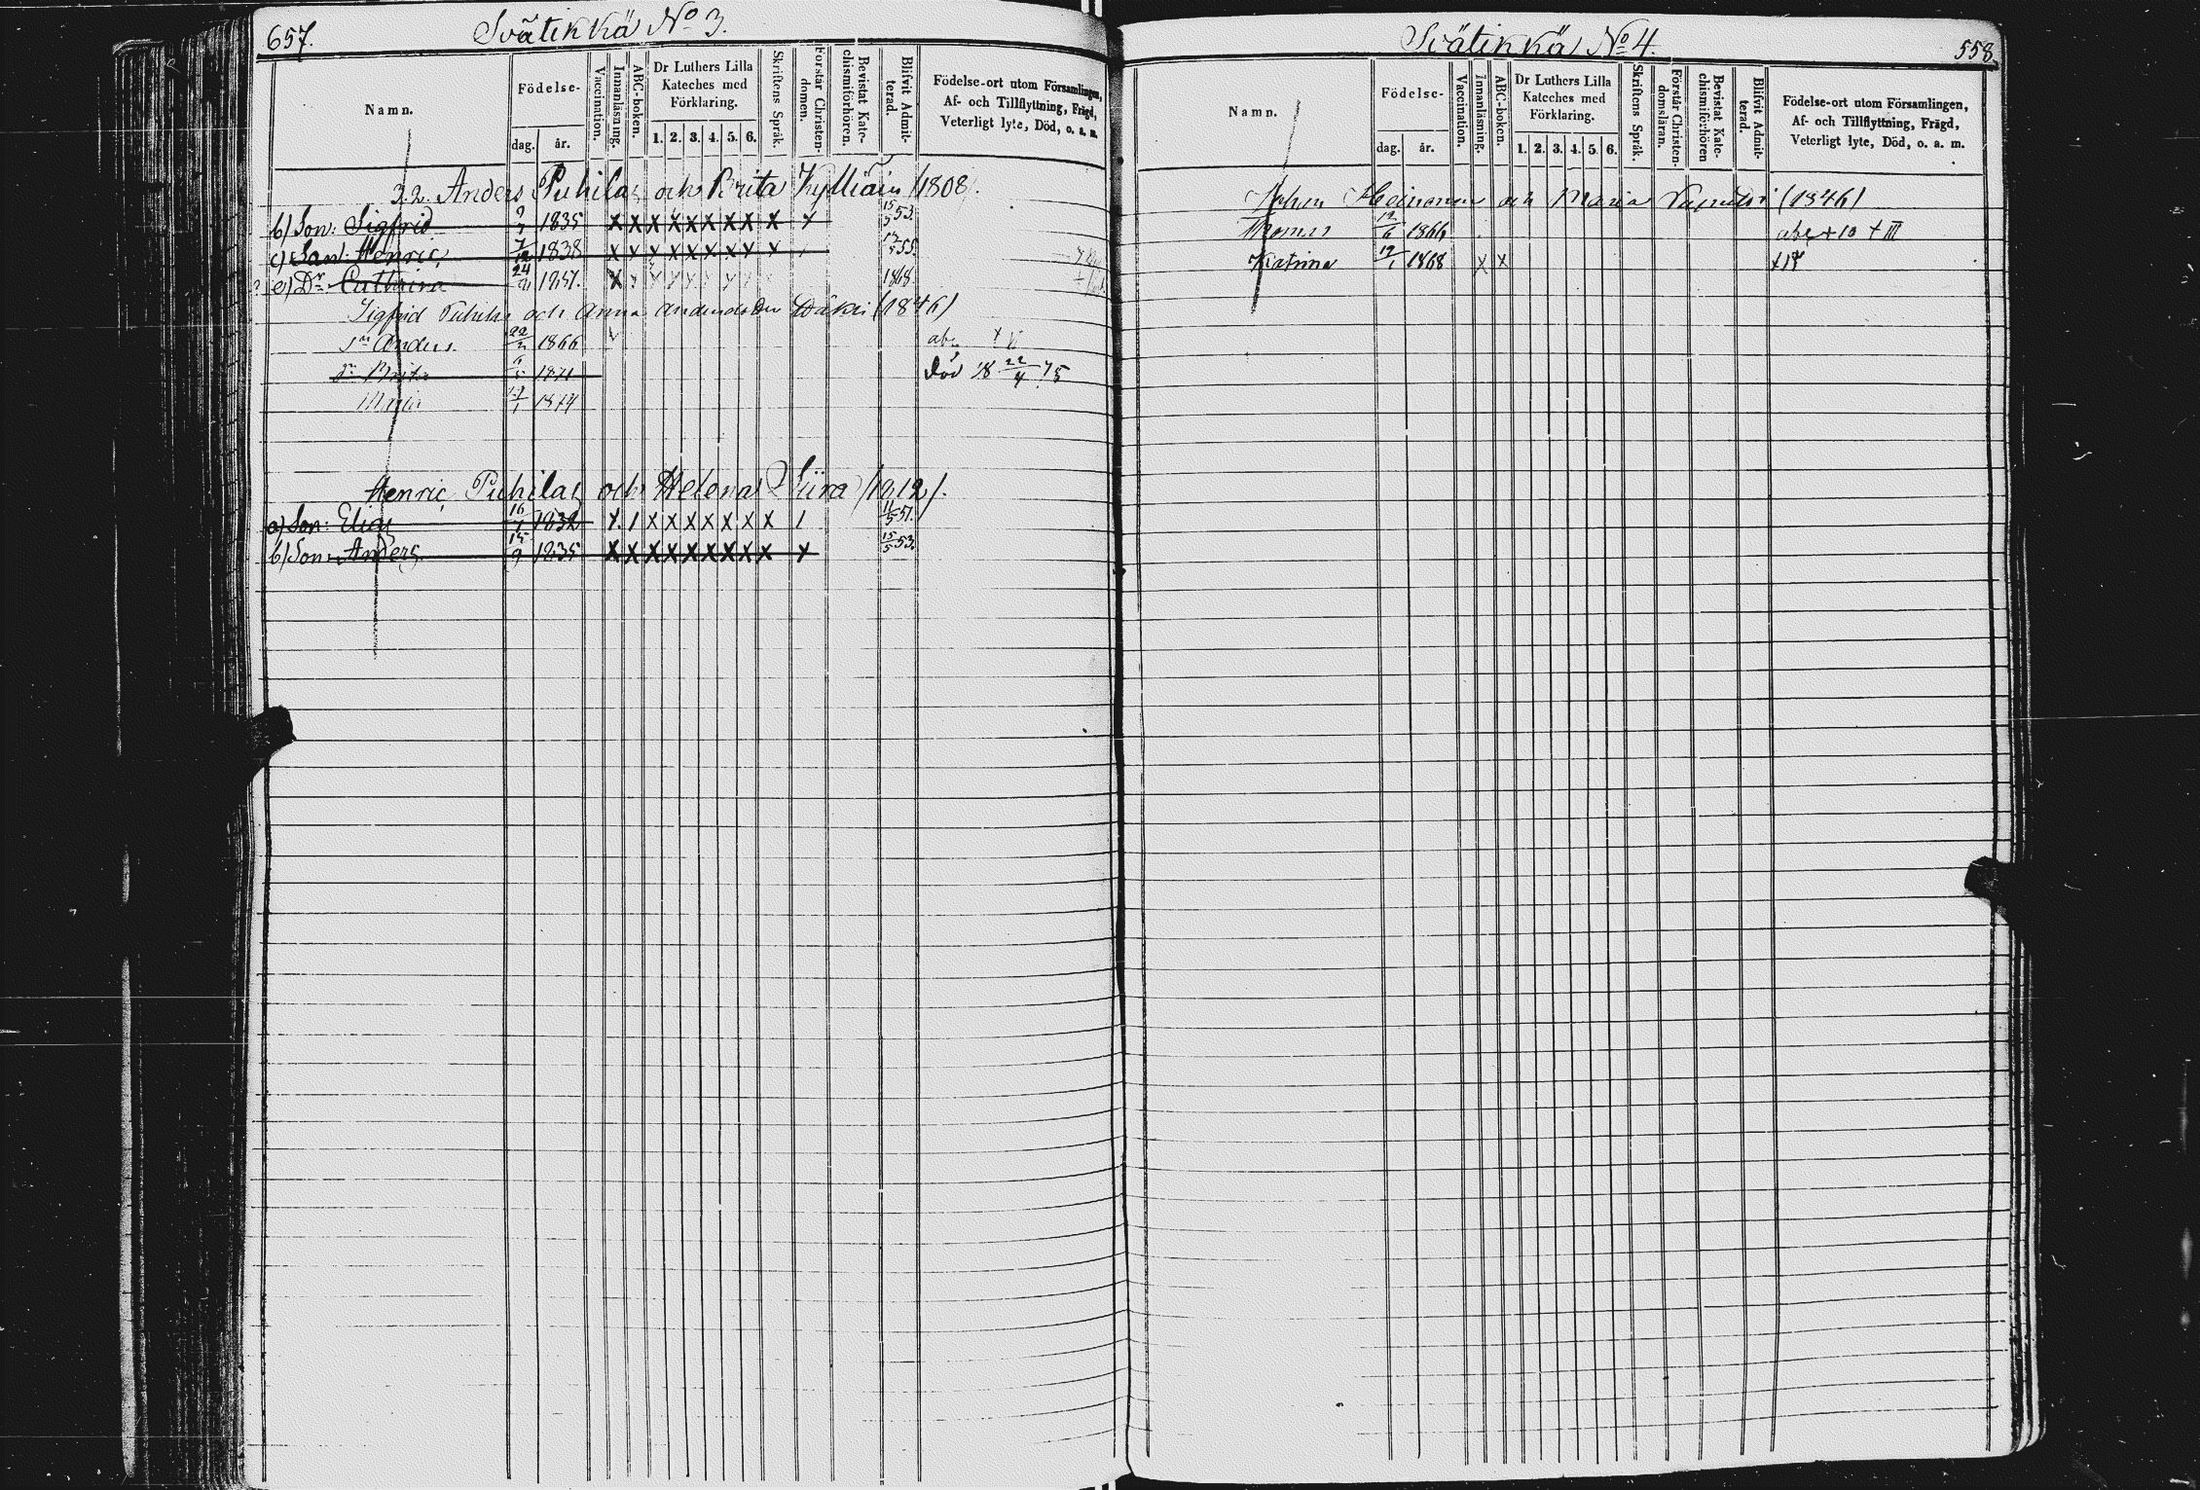 657. Svätikkä No 3.
Namn. Födelse- dag. år. Vaccination. Innanläsning. ABC-boken. Dr Luthers Lilla Kateches med Förklaring. 1. 2. 3. 4. 5. 6. Skriftens Språk. Förstår Christendomen. Bevistat Katechismiförhören. Blifvit Admitterad. Födelse-ort utom Församlingen, Af- och Tillflyttning, Frägd, Veterligt lyte, Död, o. a. m.
3.2. Anders Puhilas och Brita (1808).
b) Son: Sigfrid 1835 X X X X X X X X X X 15/5 53.
c) Son: Henric 7/12 1838 X X X X X X X X X 55.
e) Dr. Cathrina 24 X 1868.
Sigfrid och Anna (1846)
sn Anders 22 1866
dr Brita 6 1871 död 18 22/4 75
Maria 1874
Henric Puhilas och Helena Siira /1812/.
a) Son: Elias 16 1832 X / X X X X X X X / 11/5 51.
b) Son: Anders 15/9 1835 X X X X X X X X X X 15/5 53.
Svätikkä No 4. 558.
Namn. Födelse- dag. år. Vaccination. Innanläsning. ABC-boken. Dr Luthers Lilla Kateches med Förklaring. 1. 2. 3. 4. 5. 6. Skriftens Språk. Förstår Christendomsläran. Bevistat Katechismiförhören Blifvit Admitterad. Födelse-ort utom Församlingen, Af- och Tillflyttning, Frägd, Veterligt lyte, Död, o. a. m.
Johan Heinonen och Maria (1846)
Thomas 12/6 1866 abc + 10 + III
Katrina 19/1 1868 X X